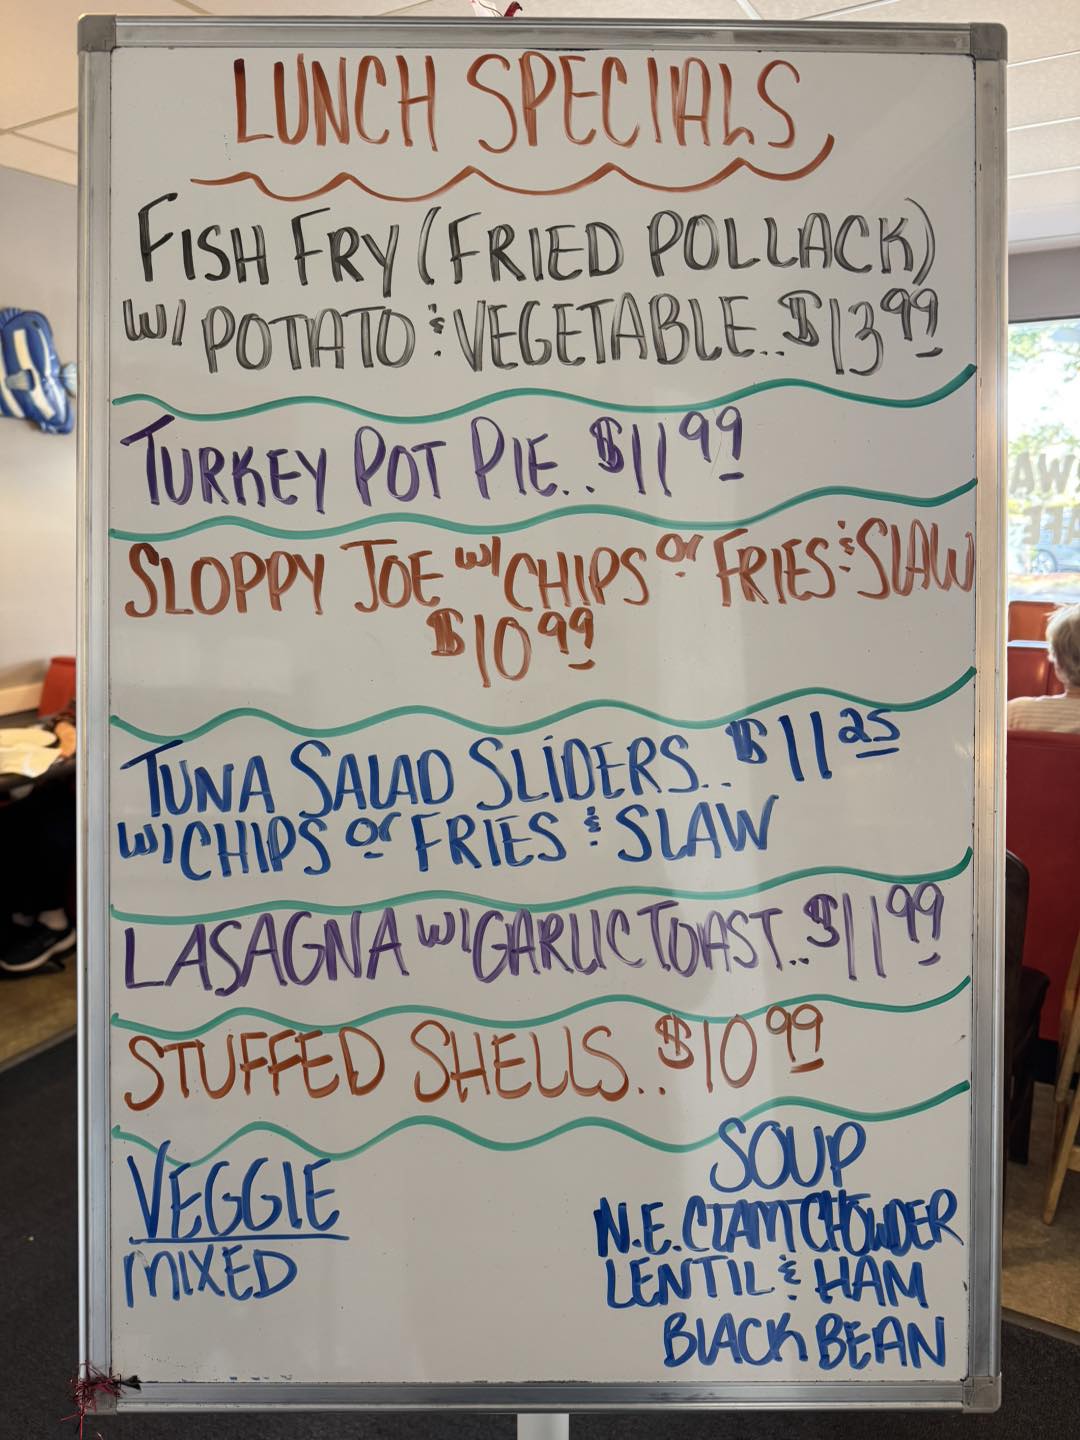 LUNCH SPECIALS
FISH FRY (FRIED POLLACK)
W/ POTATO & VEGETABLE..$13.99
TURKEY POT PIE..$11.99
SLOPPY JOE W/ CHIPS or FRIES & SLAW
$10.99
TUNA SALAD SLIDERS..$11.25
W/ CHIPS or FRIES & SLAW
LASAGNA W/ GARLIC TOAST..$11.99
STUFFED SHELLS..$10.99
VEGGIE
MIXED
SOUP
N.E. CLAM CHOWDER
LENTIL & HAM
BLACK BEAN